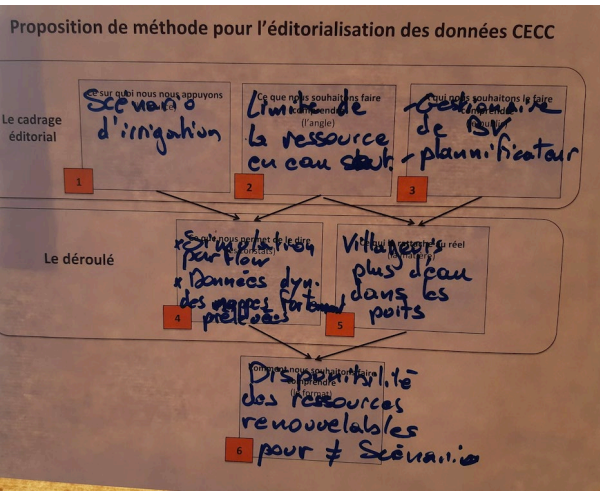 Proposition de méthode pour l'éditorialisation des données CECC
Le cadrage
éditorial
Ce sur quoi nous nous appuyons
Scénario
d'irrigation
1
Ce que nous souhaitons faire
comprendre
(l'angle)
Limite de
la ressource
en eau
2
qui nous souhaitons le faire
comprendre
- Gestionnaire
de BV
- plannificateur
3
Le déroulé
Ce que nous permet de le dire
(constats)
* Simulation
parflow
* Données dyn.
des nappes fortement
prélevées
4
Ce qui le rattache au réel
(la matière)
Villageois
plus d'eau
dans les
poits
5
Comment nous souhaitons faire
comprendre
(le format)
Disponibilité
des ressources
renouvelables
pour ≠ Scénario
6